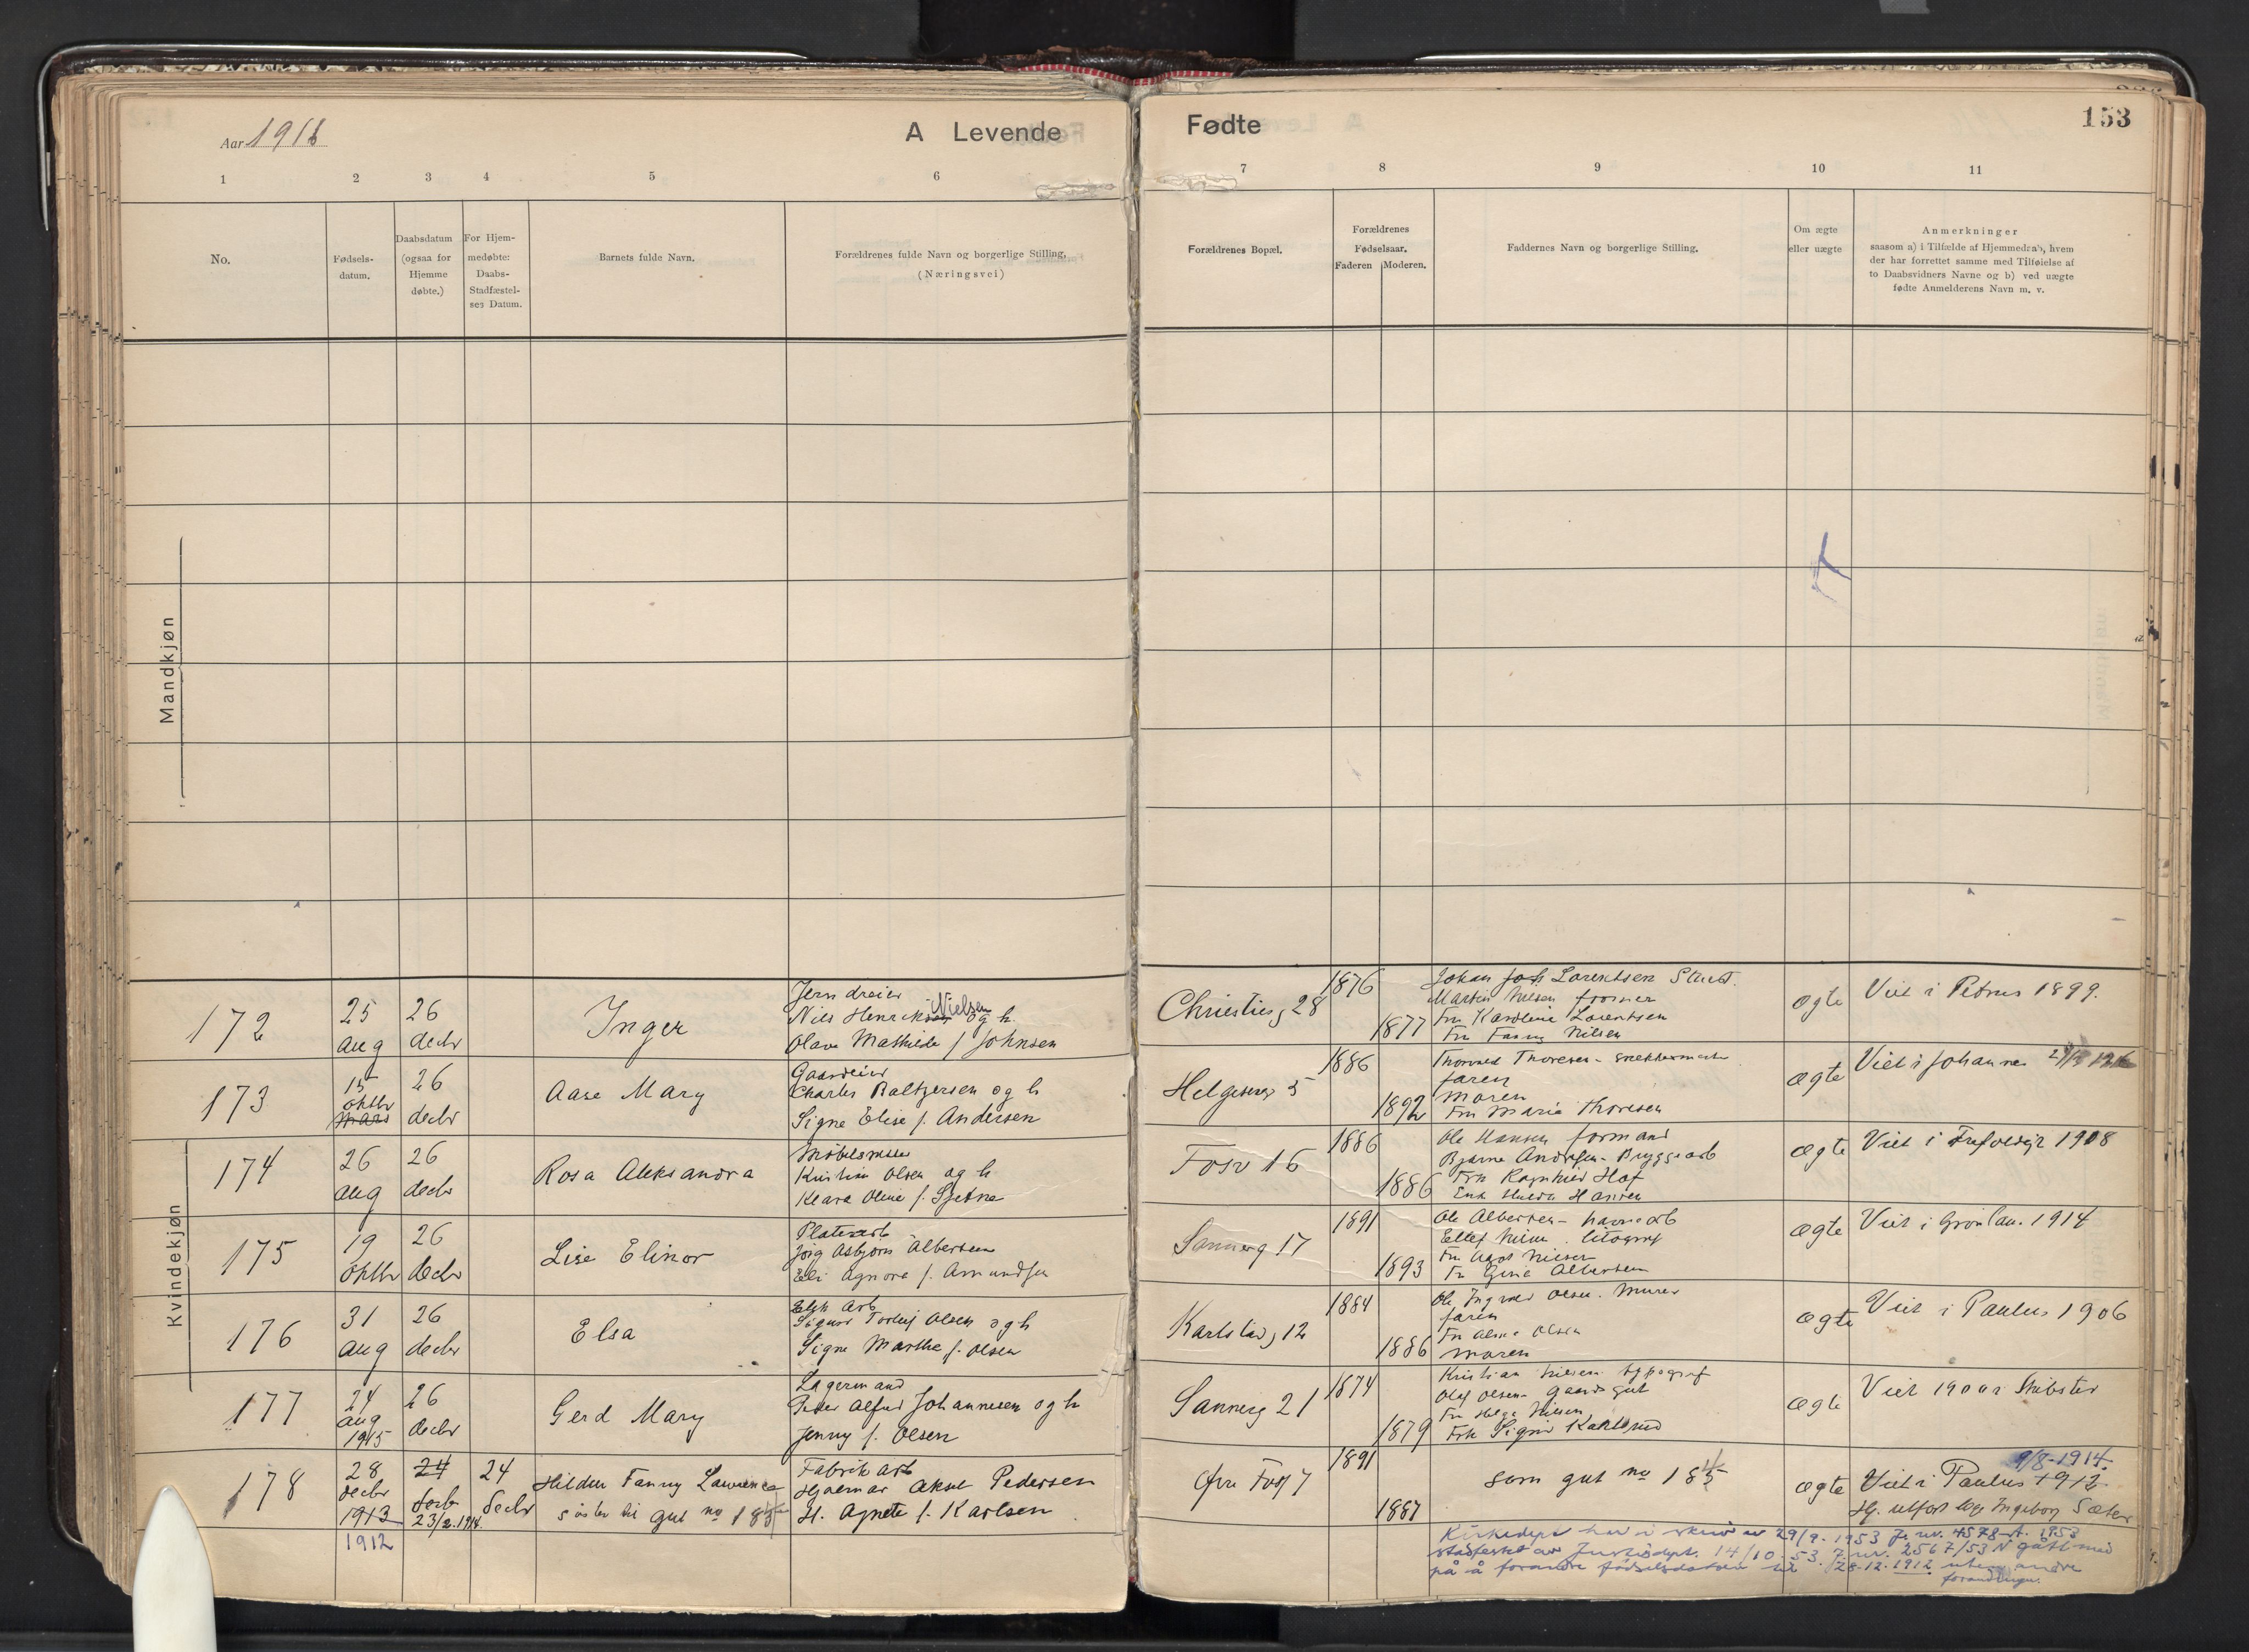 Aar 1916
A Levende
Fødte
153
1 2 3 4 5 6
7 8 9 10 11
No.
Fødsels-
datum.
Daabsdatum
(ogsaa for
Hjemme
døbte.)
For Hjem-
medøbte:
Daabs-
Stadfæstel-
ses Datum.
Barnets fulde Navn.
Forældrenes fulde Navn og borgerlige Stilling.
(Næringsvei)
Forældrenes Bopæl.
Forældrenes
Fødselsaar.
Faderen Moderen.
Faddernes Navn og borgerlige Stilling.
Om ægte
eller uægte
Anmerkninger
saasom a) i Tilfælde af Hjemmedaab, hvem
der har forrettet samme med Tilføielse af
to Daabsvidners Navne og b) ved uægte
fødte Anmelderens Navn m. v.
Mandkjøn
Kvindekjøn
172
25
aug
26
decbr
Inger
Jerndreier
Nils Henriksen Nielsen og h.
Olava Mathilde f. Johnsen
Christiesg 28
1876
1877
Johan Joh Lorentsen
Martin Nilsen former
Fru Karoline Lorentsen
Fru Fanny Nilsen
ægte
Viet i Petrus 1899.
173
15
oktbr
mars
26
decbr
Aase Mary
Gaardeier
Charles Baltzersen og h
Signe Elise f. Andersen
Helgesensg 5
1886
1892
Thorvald Thoresen - snekkermester
faren
moren
Fru Marie Thoresen
ægte
Viet i Johannes
174
26
aug
26
decbr
Rosa Aleksandra
Kristian Olsen og h
Klara Oline f. Sjetne
Fosv 16
1886
1886
Ole Hansen formand
Bjarne Andersen - Bryggearb
Frk Ragnhild Hof
Hulda Hansen
ægte
Viet i 1908
175
19
oktbr
26
decbr
Lise Elinor
Platearb
Asbjørn Albertsen
Eli Agnora f. Amundsen
Sannerg 17
1891
1893
Ole Albertsen - havnearb
litograf
Fru Nilsen
Fr Gina Albertsen
ægte
Viet i Grønland. 1914
176
31
aug
26
decbr
Elsa
Elek Arb
Sigurd Torleif Olsen og h
Signe Marthe f. Olsen
Karlstadg 12
1884
1886
Ole Ingvald Olsen. Murer
faren
Fru Alma Olsen
moren
ægte
Viet i Paulus 1906
177
24
aug
1915
26
decbr
Gerd Mary
Lagermand
Peder Alfred Johannesen og h
Jenny f. Olsen
Sannerg 21
1874
1879
Kristian Nilsen typograf
Olaf Olsen - Gaardsgut
Fru Helga Nilsen
Frk Signe Karlsrud
ægte
Viet 1900 i
178
28
decbr
1913
1912
24
23/2.1914.
24
decbr
Hildur Fanny Laurence
søster til gut no 18
Fabrikarb
Hjalmar Aksel Pedersen
H. Agnete f. Karlsen
Øvre Fosg 7
1891
1887
som gut no 18
ægte
9/8-1914.
Viet i Paulus 1912
Hj. utført ved Ingeborg Sæter
Kirkedept har i skriv av 29/9. 1953 J. nr. 4578 A. 1953
stadfestet av Justisdept. 14/10. 53. J. nr. 2567/53 N gått med
på å forandre fødselsdatoen til 28.12.1912 uten andre
forandringer.